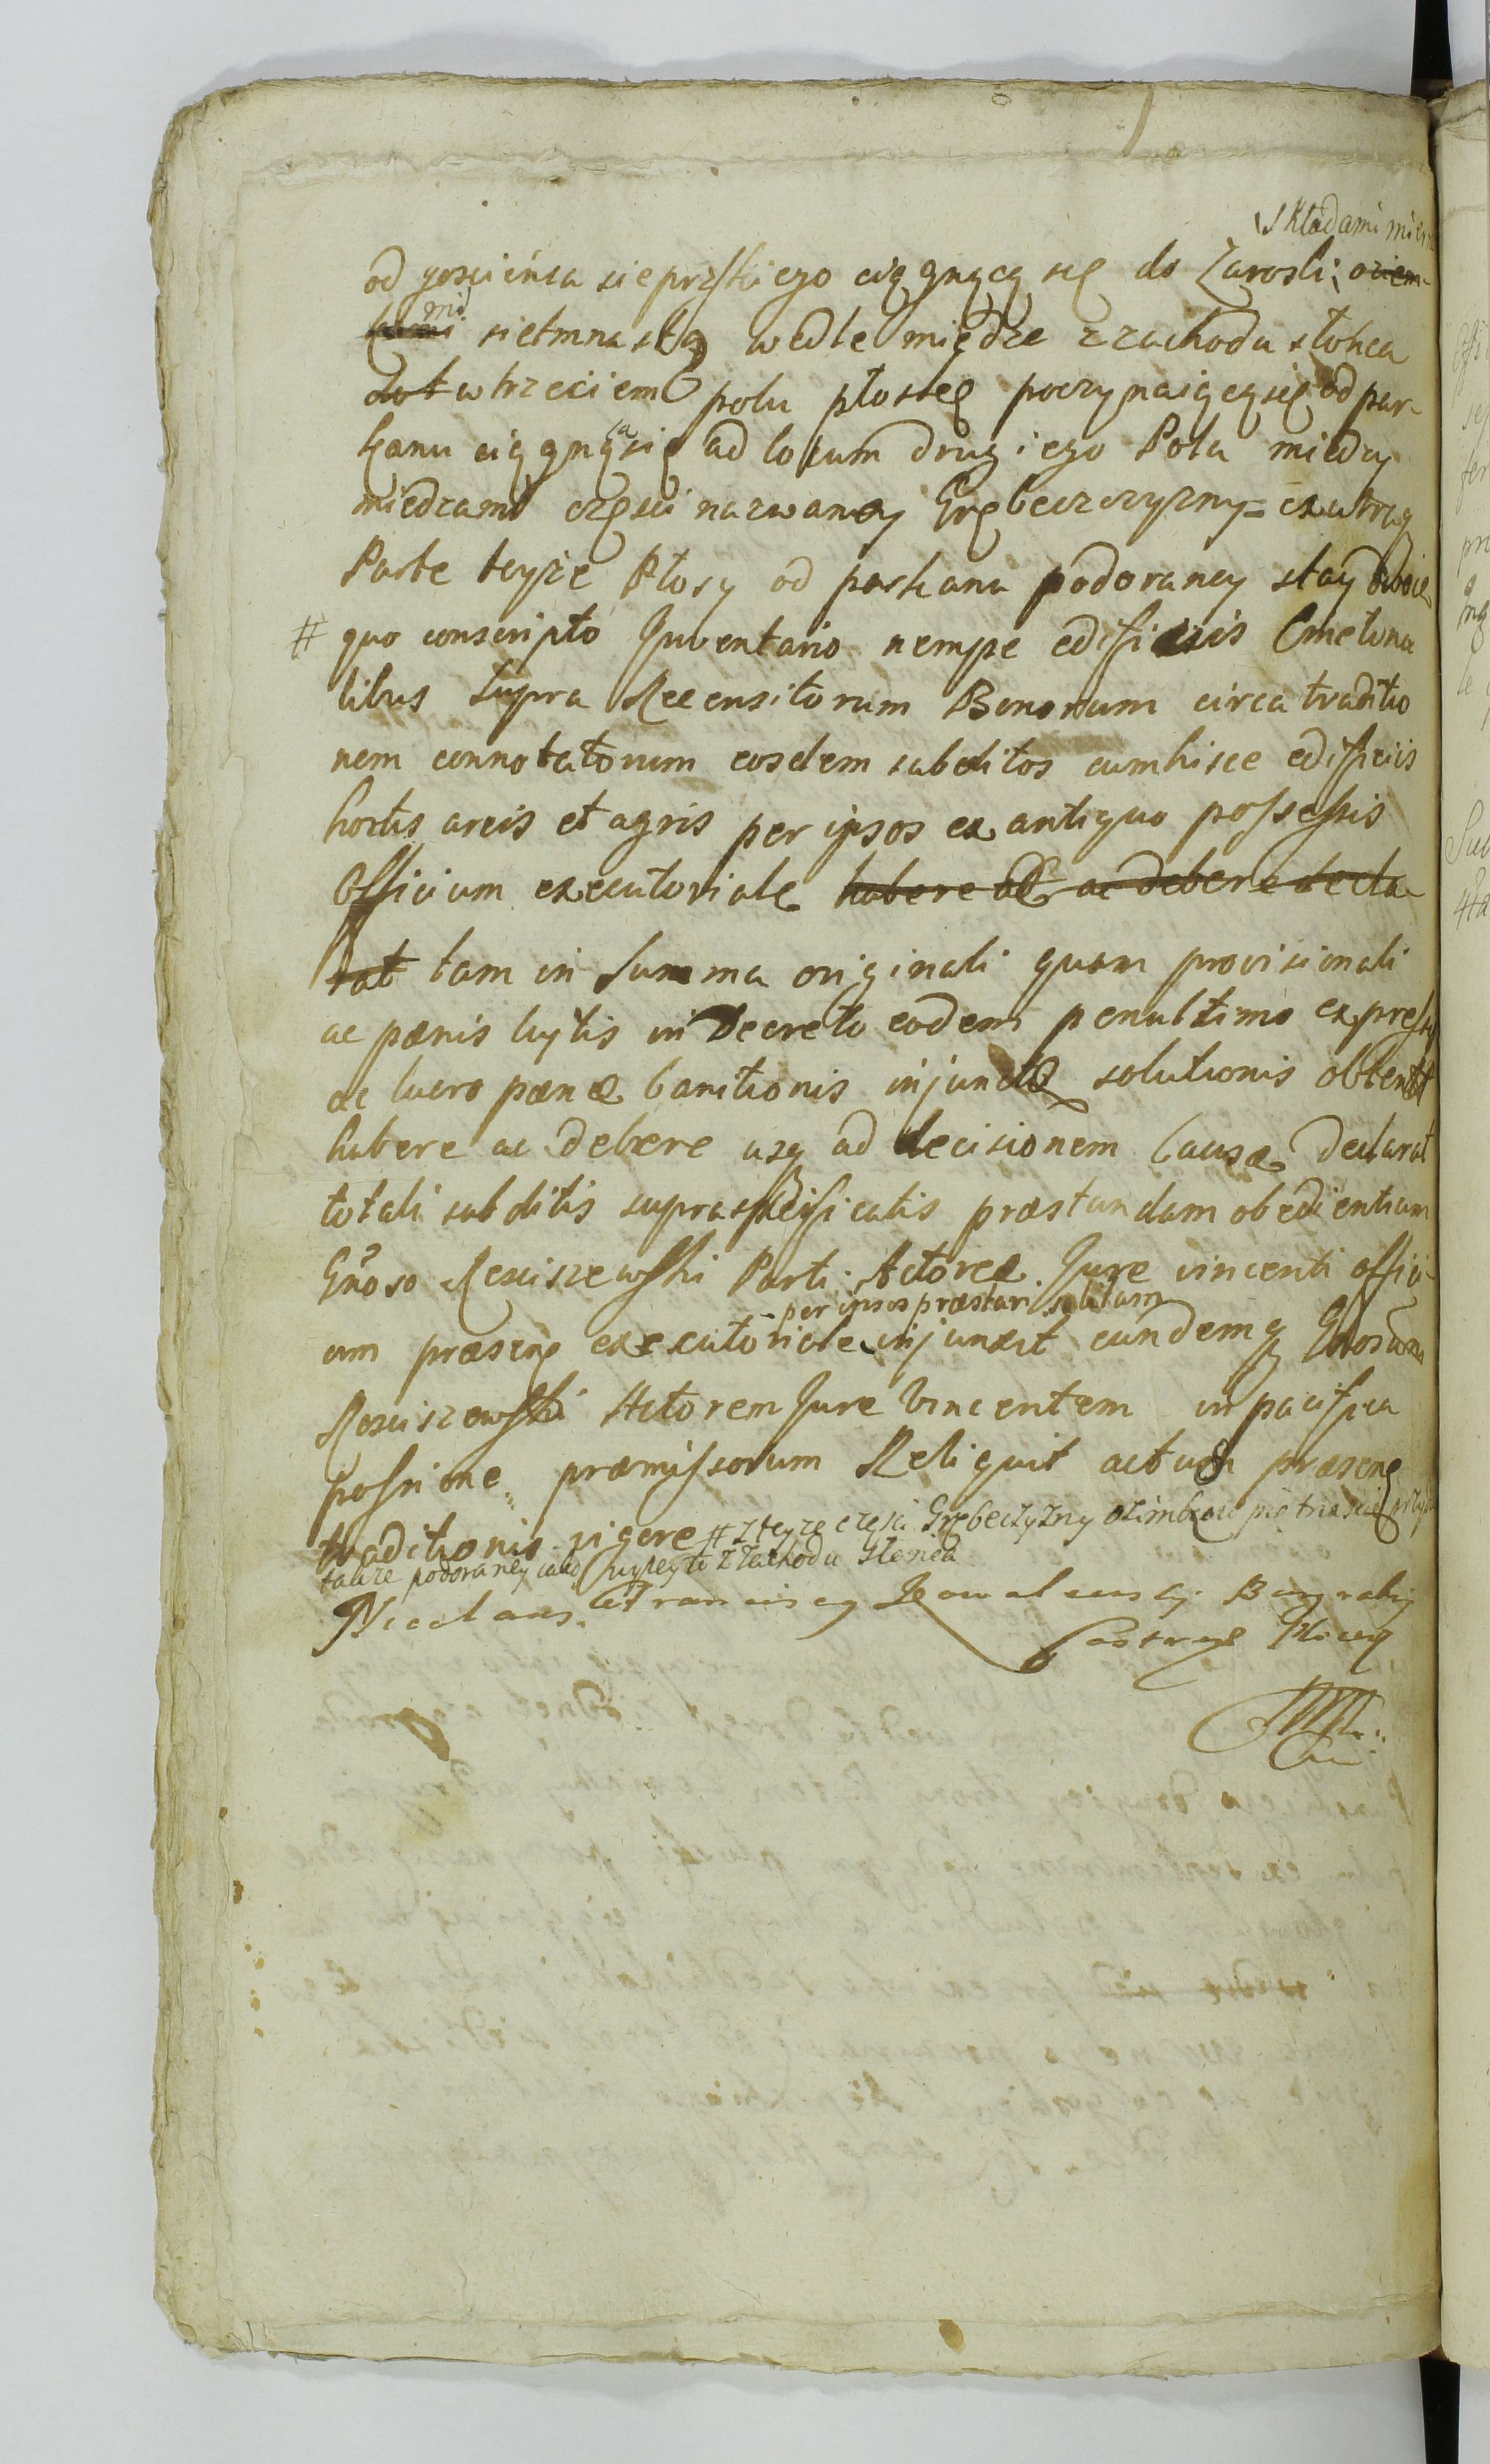 składami
od gościńca sieprskiego ciągnącą się do Zarośli; oziem-
kami mi sietmnastą wedle między z zachodu słońca
w trzeciem polu płoskę poczynaiącą się od par-
kanu ciągnącą się ad locum drugiego Pola między
miedzami części nazwaney Grębeczczyzny ex utraq
Parte teyże Płosy od parkanu podoraney stay dwoie
# quo conscripto Inventario nempe edificiis Cmetona
libus supra Recensitorum Bonorum circa traditio
nem connotatorum eosdem subditos cum hisce edificiis
hortis areis et agris per ipsos ex antiquo possessis
Officium executoriale habere ac debere decla
rat tam in Summa originali quam provisionali
ac pænis luytis in Decreto eodem penultimo expressis
ac lucro pænæ banitionis injunctæ solutionis obtent
habere ac debere usq ad decisionem Causæ declarat
totali subditis supraspecificatis præstandam obedientiam
Gnoso Rosciszewski Parti Actoreæ Jure vincenti offici
per ipsos præstari solitam
um præsens executoriale injunxit eundemq Gnosum
Rosciszewski Actorem Jure Vincentem in pacifica
possnione præmissorum Reliquit actum præsens
traditionis vigore # z teyże części Grębeczyzny ozimkow piętnaście
także podoraney z Zachodu Słońca
Nicolaus Franciscus Kowalewsky Burgrabiy
Castrens Plocen